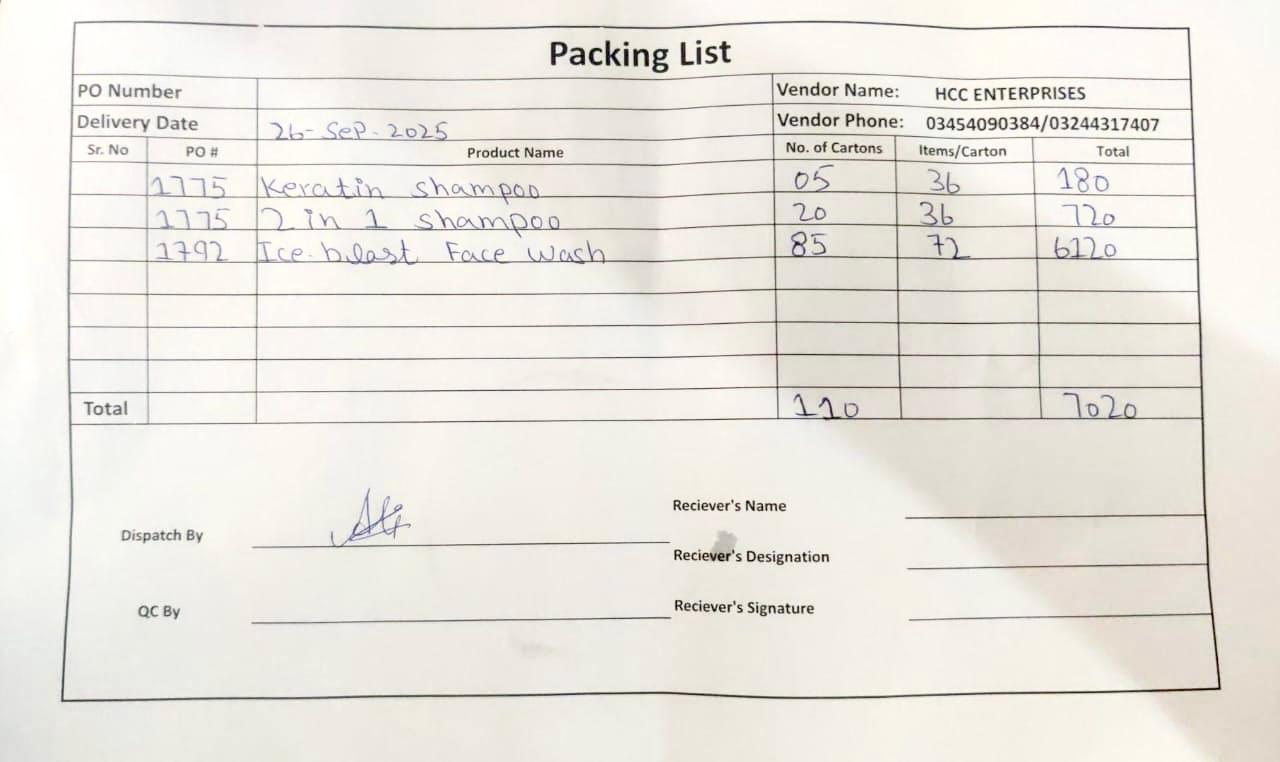 Packing List
PO Number
Vendor Name: HCC ENTERPRISES
Delivery Date 26-Sep-2025
Vendor Phone: 03454090384/03244317407
Sr. No PO # Product Name No. of Cartons Items/Carton Total
1775 Keratin shampoo 05 36 180
1775 2 in 1 shampoo 20 36 720
1792 Ice.blast Face Wash 85 72 6120
Total 110 7020
Dispatch By
Reciever's Name
Reciever's Designation
QC By
Reciever's Signature